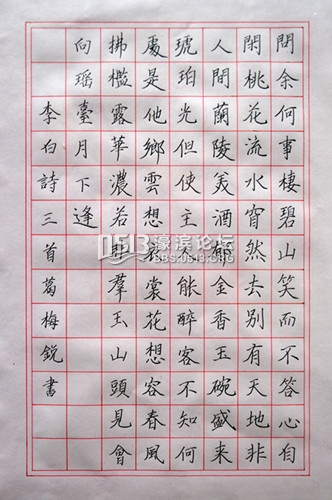 問余何事棲碧山笑而不答心自
閑桃花流水窅然去別有天地非
人間蘭陵美酒鬱金香玉碗盛來
琥珀光但使主人能醉客不知何
處是他鄉雲想衣裳花想容春風
拂檻露華濃若非羣玉山頭見會
向瑤臺月下逢
李白詩三首葛梅銳書
0513 濠滨论坛
BBS.0513.ORG